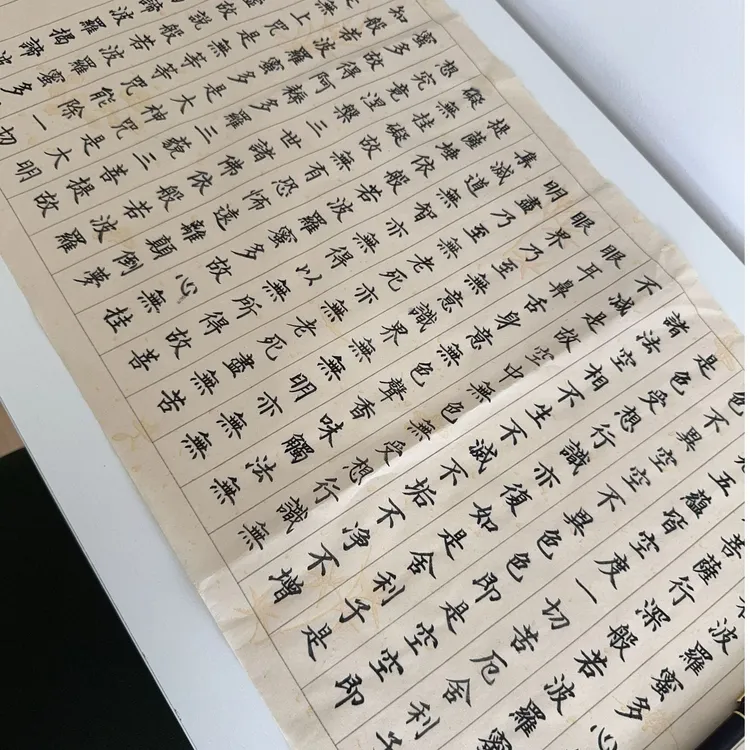 波羅蜜多心
菩薩行深般若波羅蜜
五蘊皆空度一切苦厄舍利子
色不異空空不異色色即是空空即
是色受想行識亦復如是舍利子是
諸法空相不生不滅不垢不淨不增
不減是故空中無色無受想行識無
眼耳鼻舌身意無色聲香味觸法無
眼界乃至無意識界無無明亦無無
明盡乃至無老死亦無老死盡無苦
集滅道無智亦無得以無所得故菩
提薩埵依般若波羅蜜多故心無罣
礙無罣礙故無有恐怖遠離顛倒夢
想究竟涅槃三世諸佛依般若波羅
蜜多故得阿耨多羅三藐三菩提故
知般若波羅蜜多是大神咒是大明
無上咒是無等等咒能除一切
故說般若波羅蜜多
諦波羅揭諦波